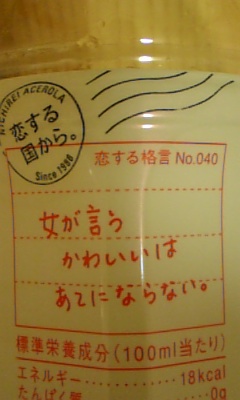 NICHIREI ACEROLA
恋する
国から。
Since 1996
恋する格言 No.040
女が言う
かわいいは
あてにならない。
標準栄養成分(100ml当たり)
エネルギー‥‥‥‥‥‥18kcal
たんぱく質‥‥‥‥‥‥0g